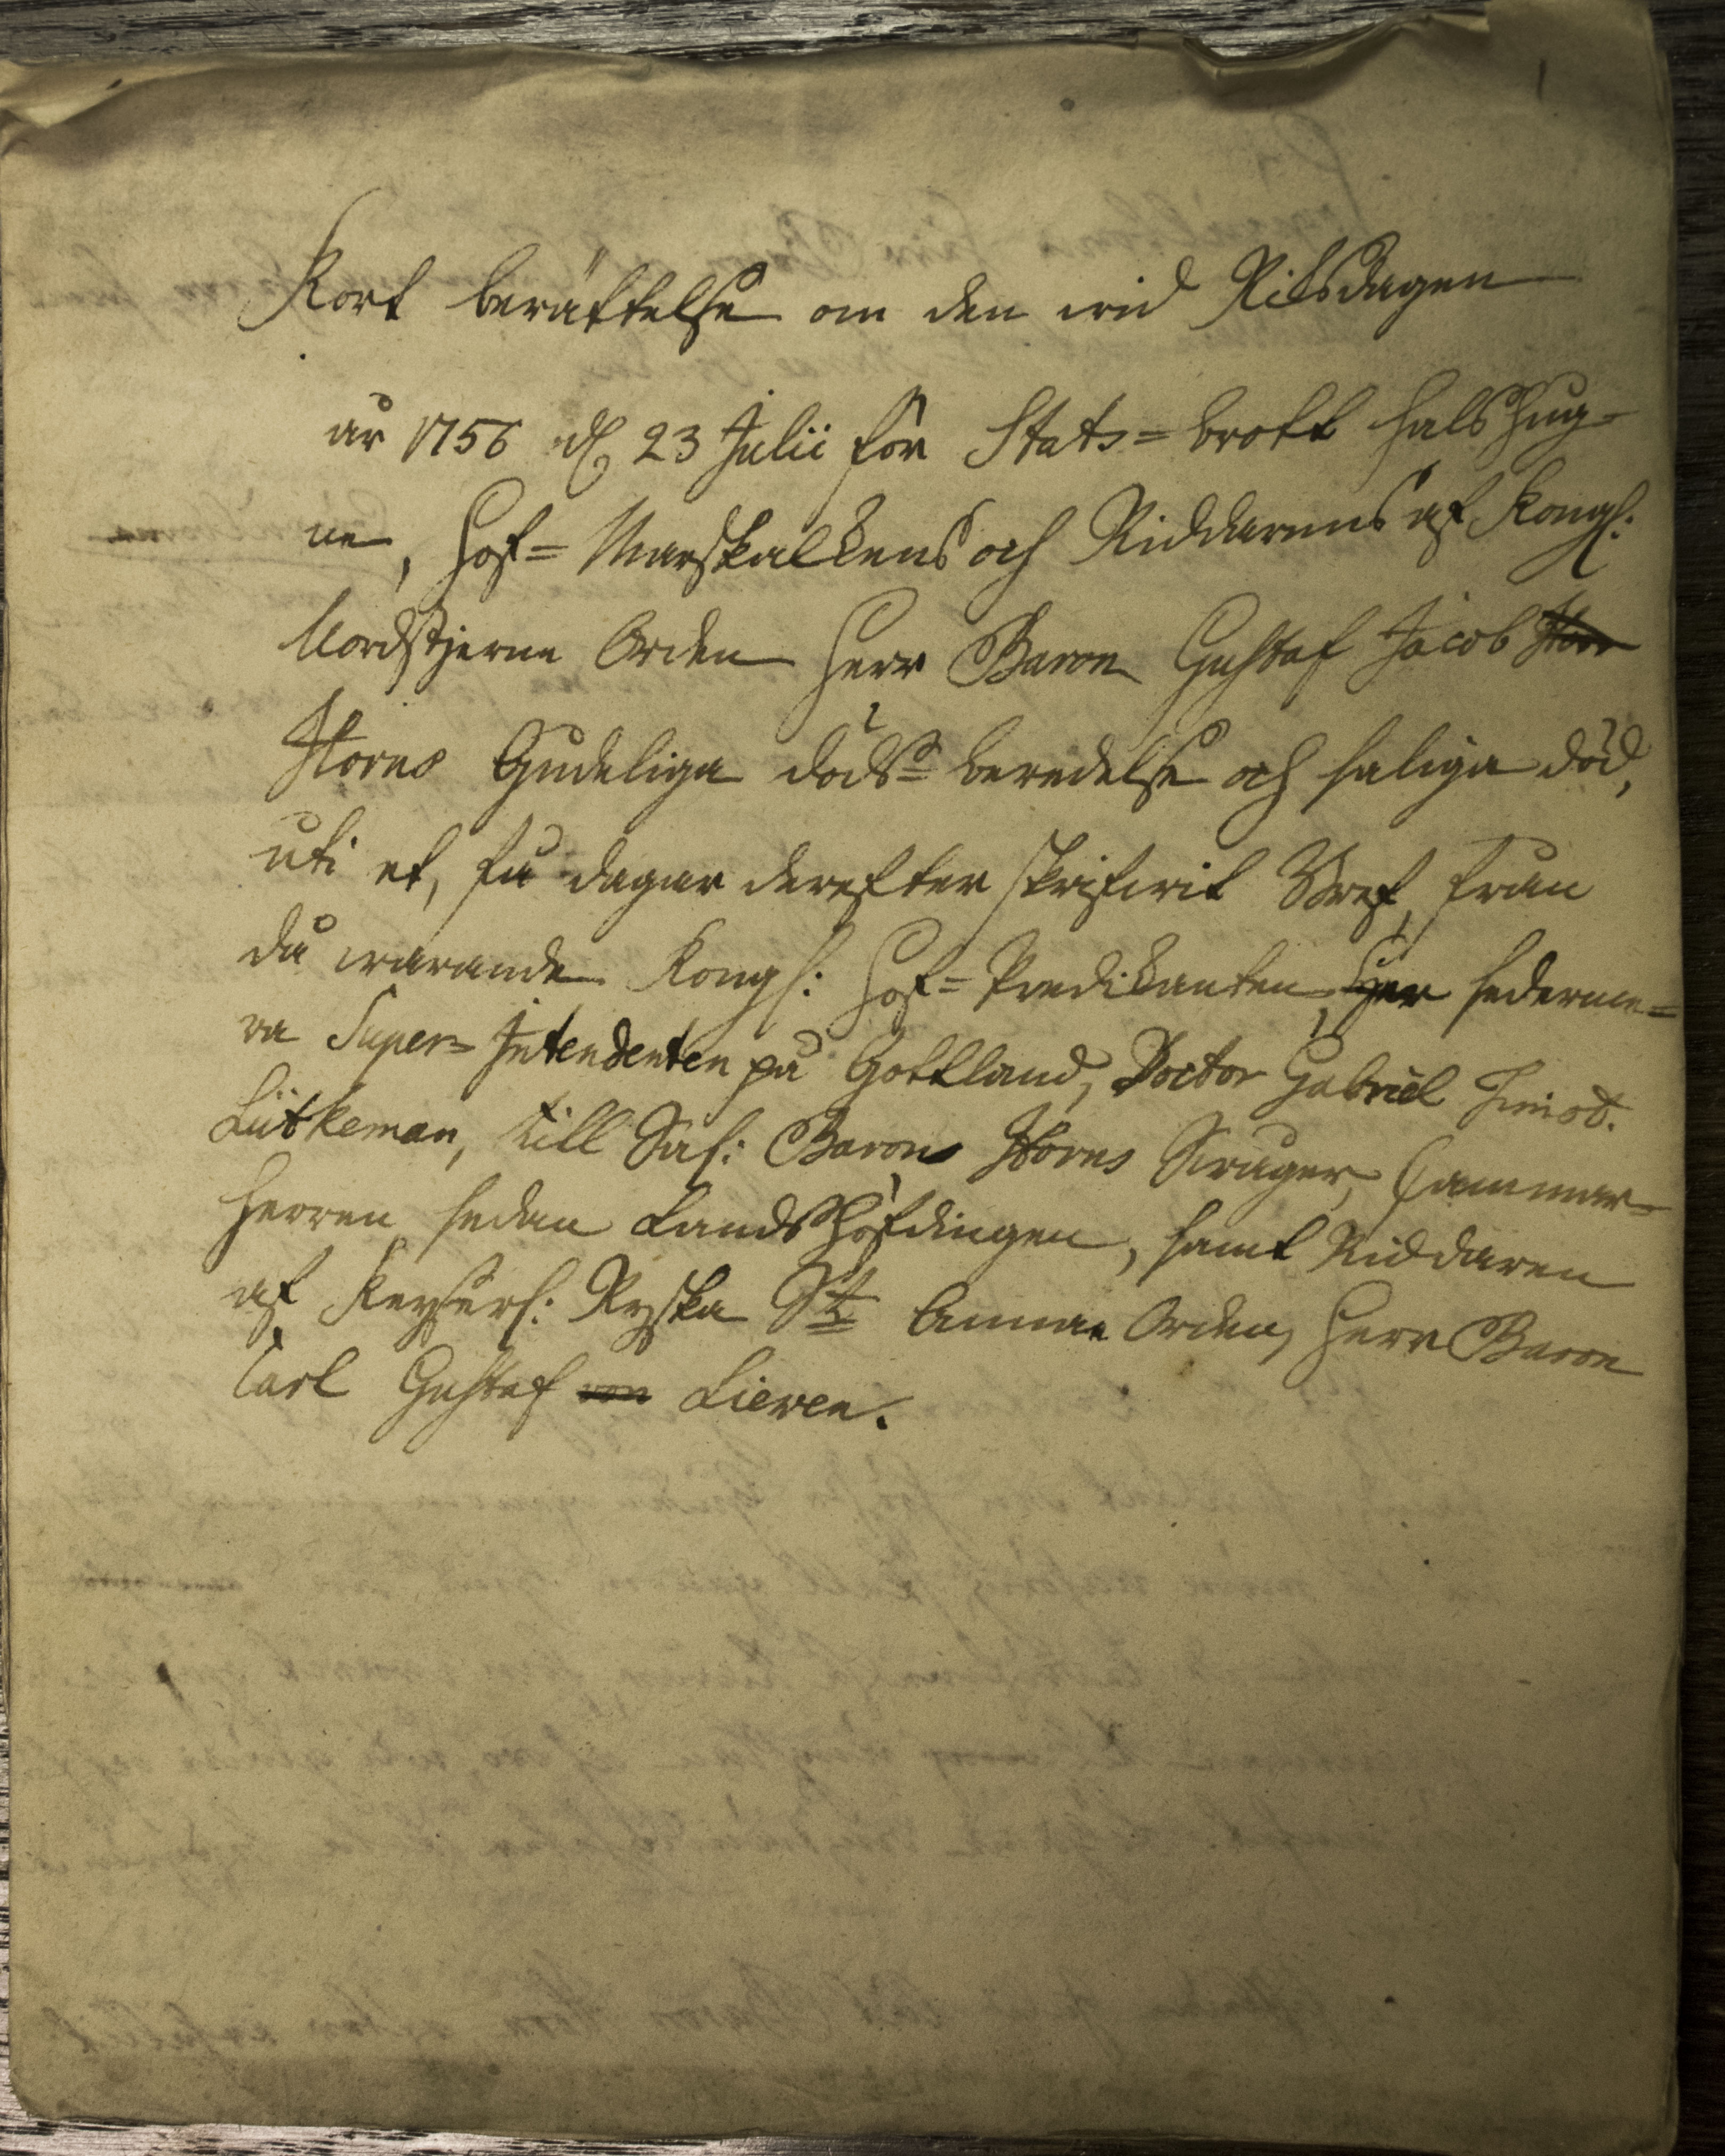 Kort berättelse om den wid Riksdagen
år 1756 d. 23 Julii för Stats=brott halshug-
ne, Hof=Marskalkens och Riddarens af Kongl:
Nordstjerne Orden Herr Baron Gustaf Jacob Horn
Horns Gudeliga döds=beredelse och saliga död,
uti et, få dagar derefter skrifwit Bref, från
då warande Kongl: Hof=Predikanten, sederme=
ra Super=Intendenten på Gottland, Doctor Gabriel Timot.
Lütkeman, till Sal: Barons Horns Swåger, Cammar=
Herren sedan Landshöfdingen, samt Riddaren
af Keyserl: Ryska St Annae Orden, Herr Baron
Carl Gustaf von Liewen.